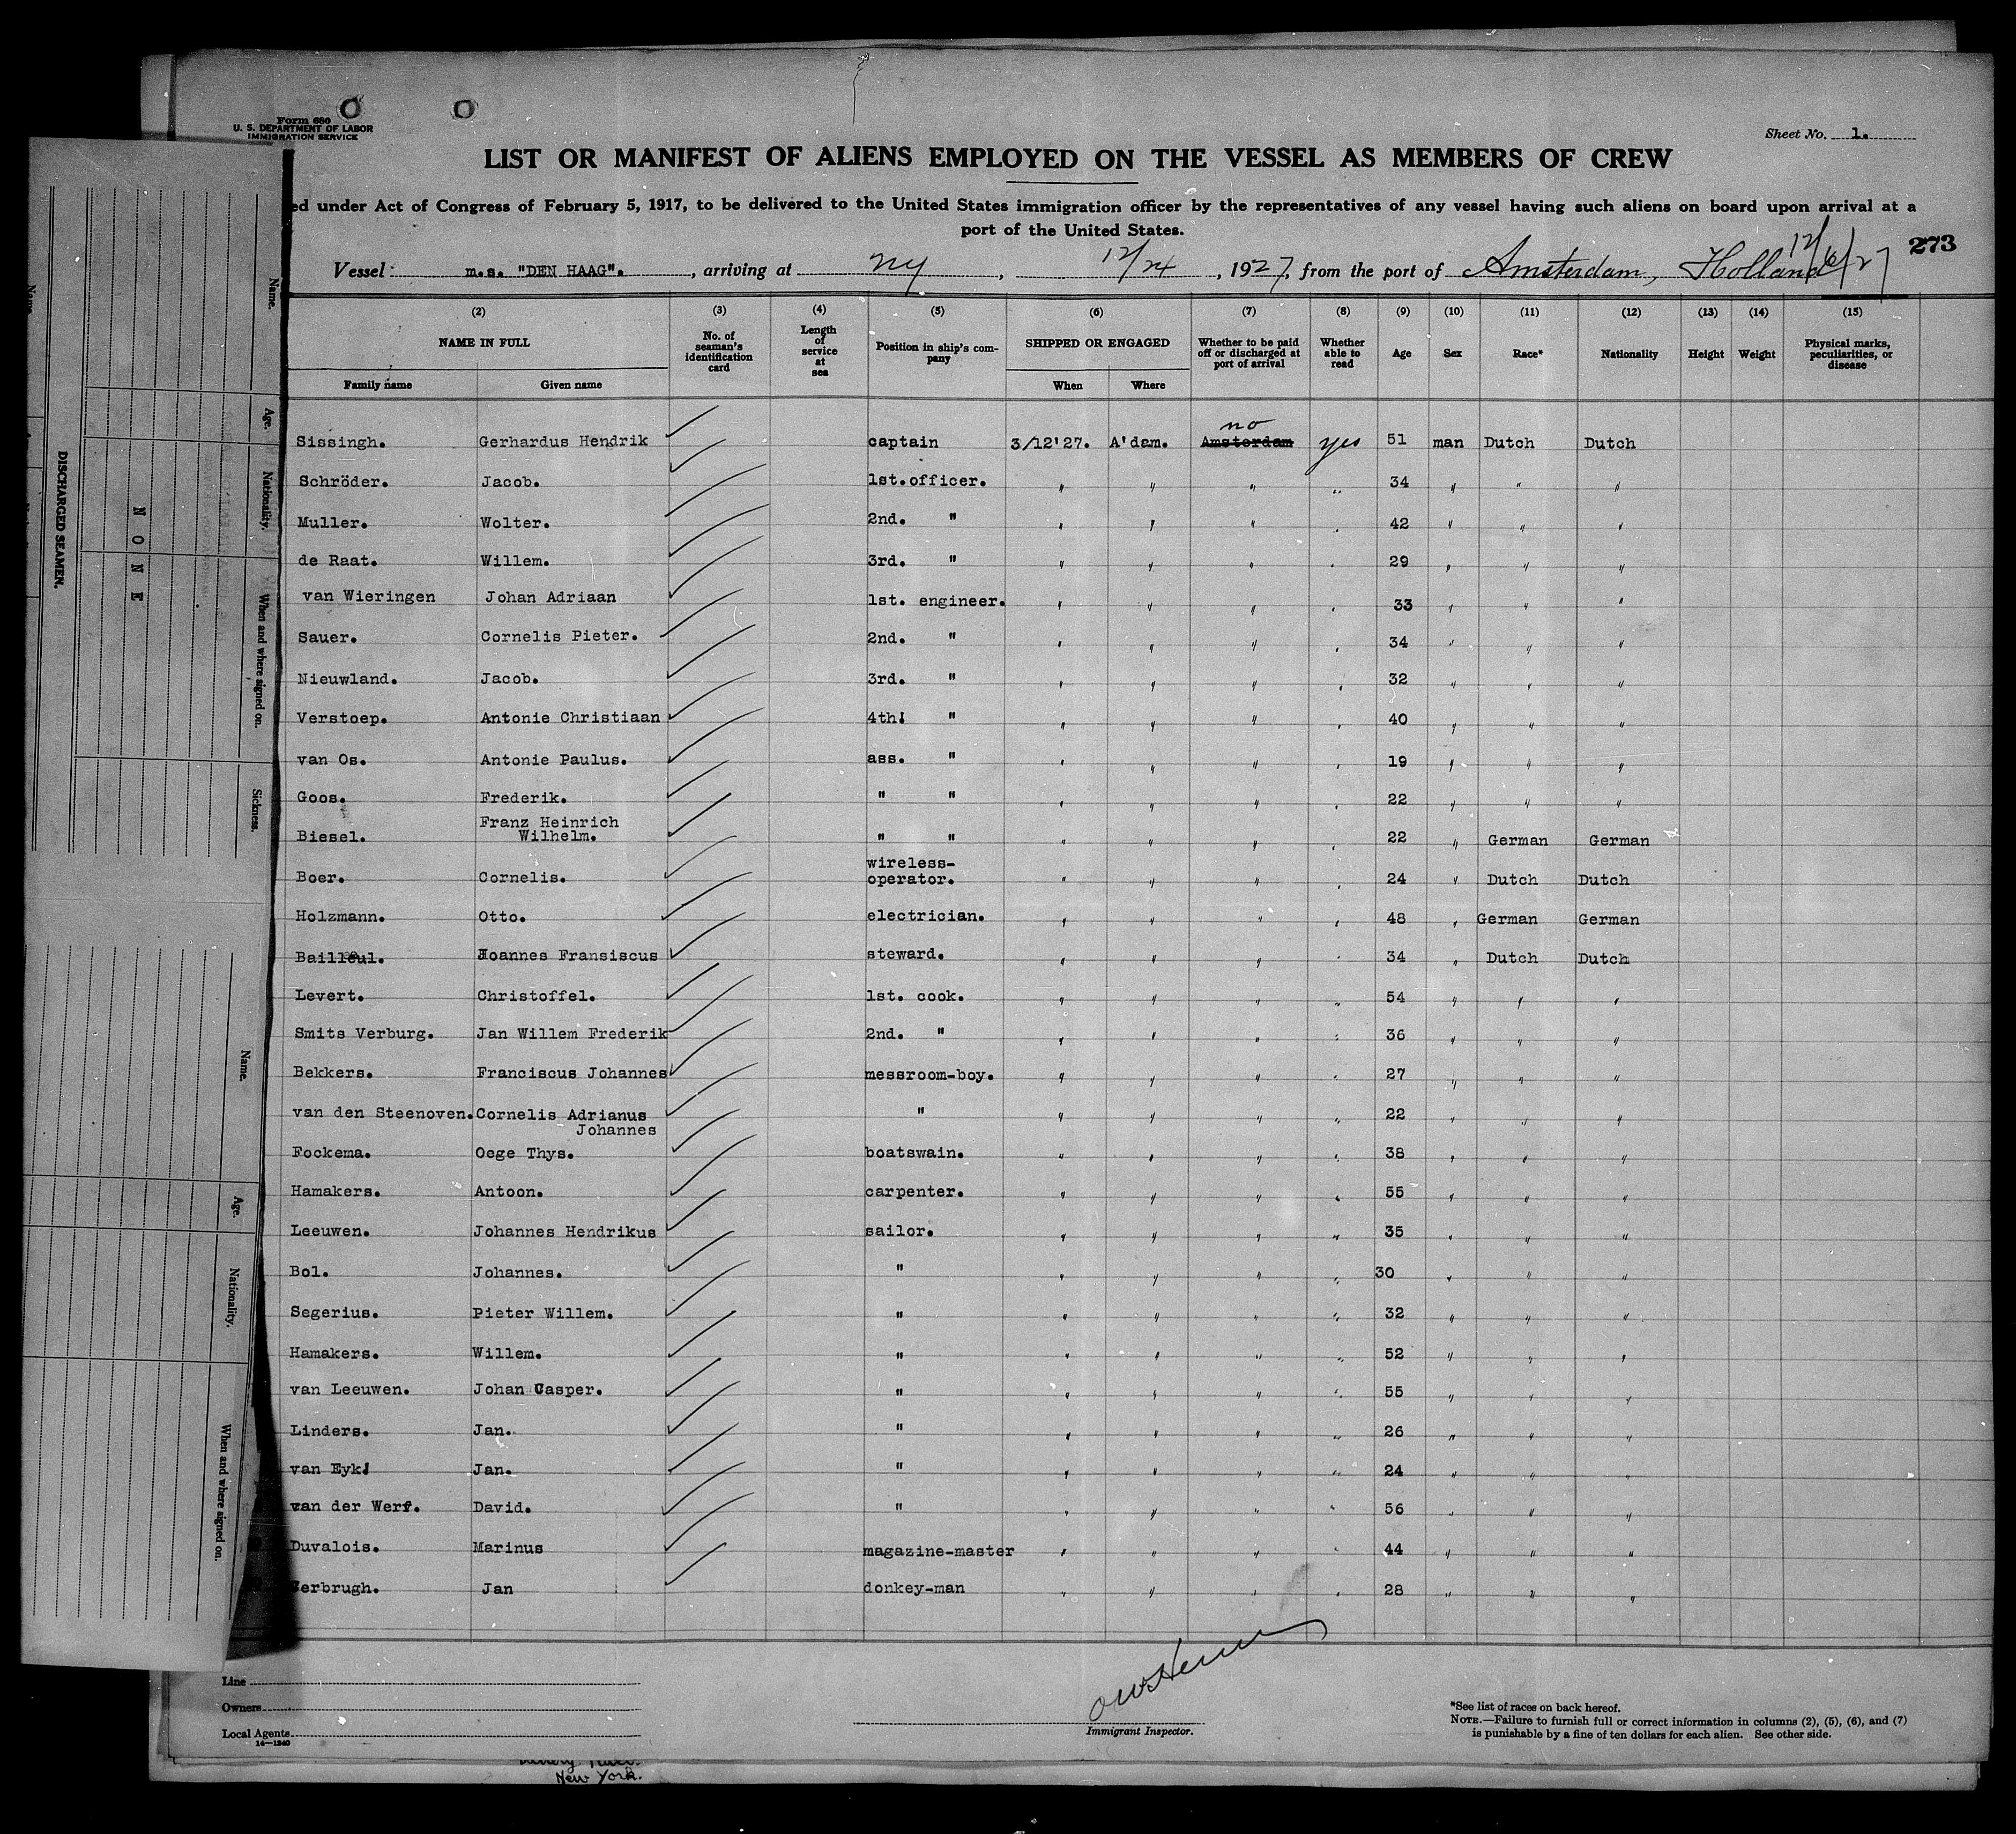 Form 680
U. S. DEPARTMENT OF LABOR
IMMIGRATION SERVICE
Sheet No. 1.
LIST OR MANIFEST OF ALIENS EMPLOYED ON THE VESSEL AS MEMBERS OF CREW
ed under Act of Congress of February 5, 1917, to be delivered to the United States immigration officer by the representatives of any vessel having such aliens on board upon arrival at a
port of the United States.
273
Vessel m.s. "DEN HAAG". , arriving at NY , 12/24 , 1927, from the port of Amsterdam, Holland 12/6/27
(2) (3) (4) (5) (6) (7) (8) (9) (10) (11) (12) (13) (14) (15)
NAME IN FULL No. of seaman's identification card Length of service at sea Position in ship's company SHIPPED OR ENGAGED Whether to be paid off or discharged at port of arrival Whether able to read Age Sex Race* Nationality Height Weight Physical marks, peculiarities, or disease
Family name Given name When Where
no
Sissingh. Gerhardus Hendrik captain 3/12'27. A'dam. Amsterdam yes 51 man Dutch Dutch
Schröder. Jacob. 1st.officer. " " " " 34 " " "
Muller. Wolter. 2nd. " " " " " 42 " " "
de Raat. Willem. 3rd. " " " " " 29 " " "
van Wieringen Johan Adriaan 1st. engineer. " " " " 33 " " "
Sauer. Cornelis Pieter. 2nd. " " " " " 34 " " "
Nieuwland. Jacob. 3rd. " " " " " 32 " " "
Verstoep. Antonie Christiaan 4th! " " " " " 40 " " "
van Os. Antonie Paulus. ass. " " " " " 19 " " "
Goos. Frederik. " " " " " " 22 " " "
Franz Heinrich
Biesel. Wilhelm. " " " " " " 22 " German German
wireless-
Boer. Cornelis. operator. " " " " 24 " Dutch Dutch
Holzmann. Otto. electrician. " " " " 48 " German German
Bailleul. Joannes Fransiscus steward. " " " " 34 " Dutch Dutch
Levert. Christoffel. 1st. cook. " " " " 54 " " "
Smits Verburg. Jan Willem Frederik 2nd. " " " " " 36 " " "
Bekkers. Franciscus Johannes messroom-boy. " " " " 27 " " "
van den Steenoven. Cornelis Adrianus " " " " " 22 " " "
Johannes
Fockema. Oege Thys. boatswain. " " " " 38 " " "
Hamakers. Antoon. carpenter. " " " " 55 " " "
Leeuwen. Johannes Hendrikus sailor. " " " " 35 " " "
Bol. Johannes. " " " " " 30 " " "
Segerius. Pieter Willem. " " " " " 32 " " "
Hamakers. Willem. " " " " " 52 " " "
van Leeuwen. Johan Casper. " " " " " 55 " " "
Linders. Jan. " " " " " 26 " " "
van Eyk! Jan. " " " " " 24 " " "
van der Werf. David. " " " " " 56 " " "
Duvalois. Marinus magazine-master " " " " 44 " " "
erbrugh. Jan donkey-man " " " " 28 " " "
Line
Owners
Local Agents
14—1240
Immigrant Inspector.
*See list of races on back hereof.
NOTE.—Failure to furnish full or correct information in columns (2), (5), (6), and (7)
is punishable by a fine of ten dollars for each alien. See other side.
New York.
DISCHARGED SEAMEN.
NONE
Name.
Age.
Nationality.
When and where signed on.
Sickness.
Name.
Age.
Nationality.
When and where signed on.